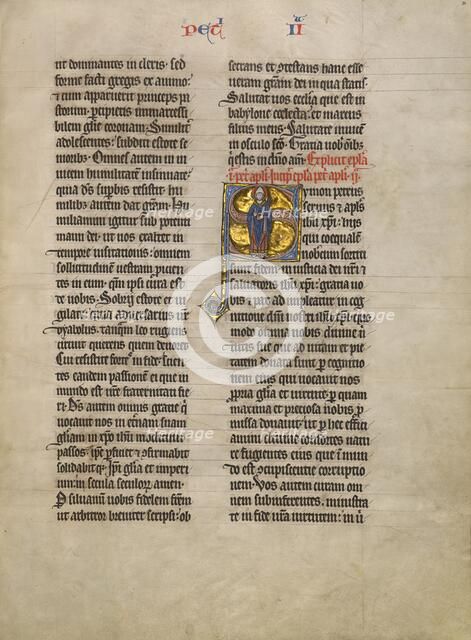 PETI II
nt dominantes in cleris. sed
forme facti gregis ex animo:
et cum apparuerit princeps pa
storum. percipietis immarcessi
bilem glie coronam. Similit
adolescentes: subditi estote se
nioribus. Omnes autem in in
uicem humilitatem insinuate.
quia ds supbis resistit: hu
milibus autem dat gram. Hu
miliamini igitur sub potenti
manu dei: ut uos exaltet in
tempore uisitationis: omnem
sollicitudinem uestram proicien
tes in eum. qm ipsi cura est
de uobis. Sobrii estote et ui
gilate. quia aduersarius ur
dyabolus. tanqm leo rugiens
circuit querens quem deuoret.
Cui resistite fortes in fide: scien
tes eandem passionem ei que in
mundo est ure fraternitati fie
ri. Ds autem omnis gratie qui
uocauit nos in eternam suam
gliam in xpo ihu modicum
passos. ipse pficiet et confirmabit
solidabitq. Ipi glia et imperi
um: in secula seculorum. amen.
Per siluanum uobis fidelem frem
ut arbitror breuiter scripsi: ob
secrans et contestans hanc esse
ueram gram dei in qua statis.
Salutat uos ecclia que est in
babylone collecta: et marcus
filius meus. Salutate inuice
in osculo sco. Gratia uobis oib
qui estis in xpo ihu. am. Explicit epla
i. pet apli. Incip epla pet apli. ii.
Symon petrus
seruus et apls
ihu xpi. hiis
qui coequalem
nobiscum sortiti
sunt fidem in iusticia dei nri et
saluatoris ihu xpi. gratia uo
bis et pax adimpleatur in cog
nitione dni nostri ihu xpi. quo
modo omnia nobis diuine uir
tutis sue que ad uitam et pie
tatem donata sunt per cognitio
nem eius qui uocauit nos
propria glia et uirtute: per quem
maxima et preciosa nobis pro
missa donauit: ut per hec effici
amini diuine consortes natu
re. fugientes eius que in mun
do est concupiscentie corruptio
nem. Vos autem curam om
nem subinferentes. ministra
te in fide ura uirtutem: in uir
Heritage Images
Heritage Images
Heritage Images
Heritage Images